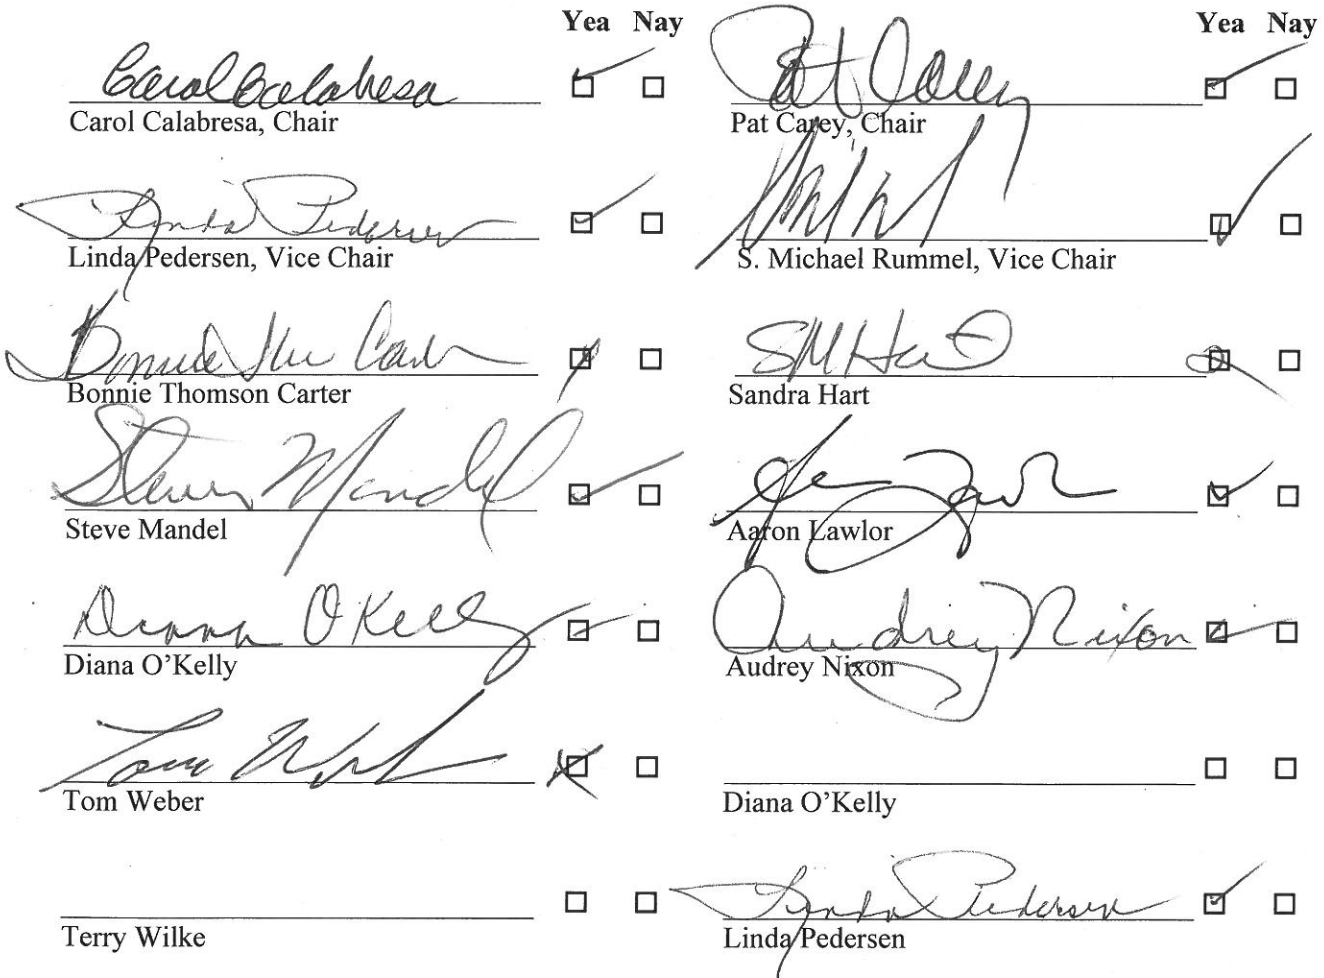 Yea Nay
Carol Calabresa
Carol Calabresa, Chair
Linda Pedersen
Linda Pedersen, Vice Chair
Bonnie Tho Carter
Bonnie Thomson Carter
Steve Mandel
Steve Mandel
Diana O'Kelly
Diana O'Kelly
Tom Weber
Tom Weber
Terry Wilke
Yea Nay
Pat Carey
Pat Carey, Chair
S. Michael Rummel, Vice Chair
SM Hart
Sandra Hart
Aaron Lawlor
Audrey Nixon
Audrey Nixon
Diana O'Kelly
Linda Pedersen
Linda Pedersen